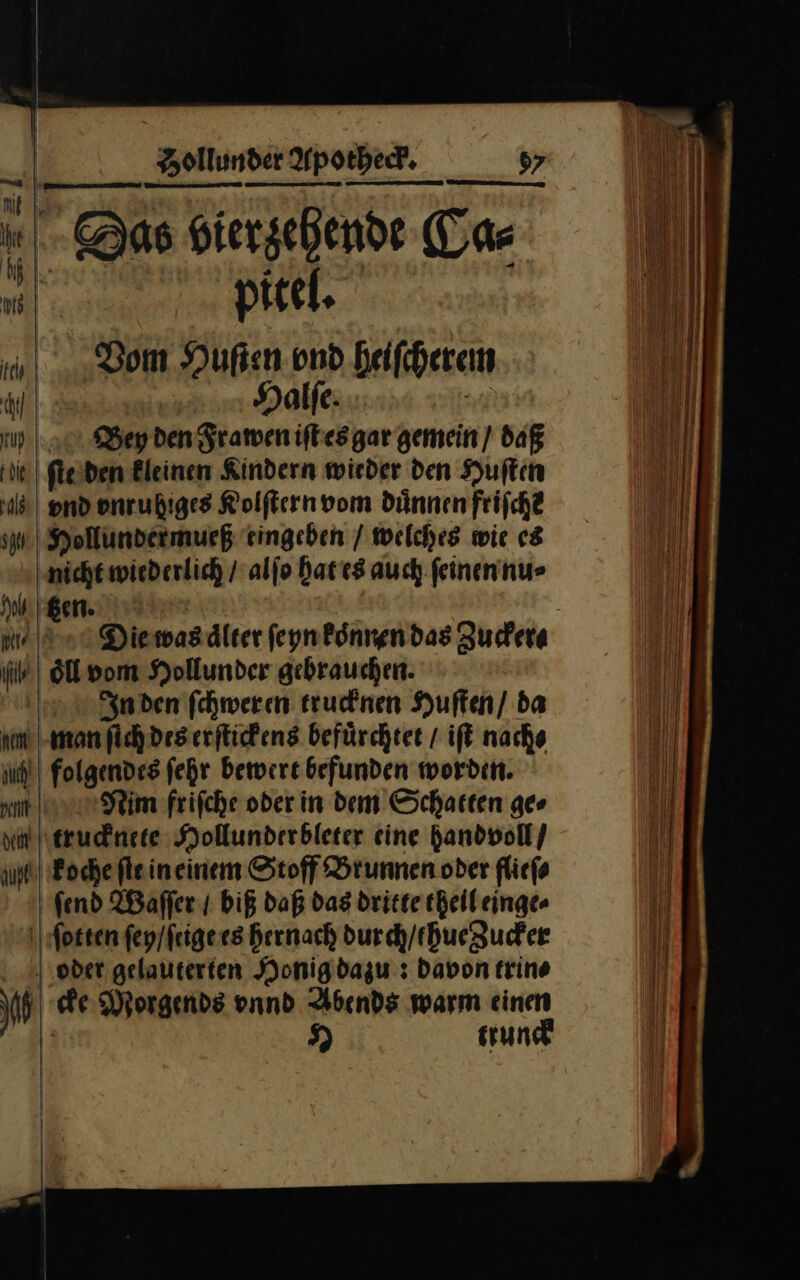 Hollunder Apotheck. 97
Das vierzehende Ca⸗
pitel.
Vom Huſten vnd heiſcherem
Halſe.
Bey den Frawen iſt es gar gemein / daß
ſie den kleinen Kindern wieder den Huſten
vnd vnruhiges Kolſtern vom duͤnnen friſchẽ
Hollundermueß eingeben / welches wie es
nicht wiederlich / alſo hat es auch ſeinen nu⸗
tzen.
Die was aͤlter ſeyn koͤnnen das Zucker⸗
oͤll vom Hollunder gebrauchen.
In den ſchweren trucknen Huſten / da
man ſich des erſtickens befuͤrchtet / iſt nach⸗
folgendes ſehr bewert befunden worden.
Nim friſche oder in dem Schatten ge⸗
trucknete Hollunderbleter eine handvoll /
koche ſie in einem Stoff Brunnen oder flieſ⸗
ſend Waſſer / biß daß das dritte theil einge⸗
ſotten ſey / ſeige es hernach durch / thue Zucker
oder gelauterten Honig dazu : davon trin⸗
cke Morgends vnnd Abends warm einen
H trunck